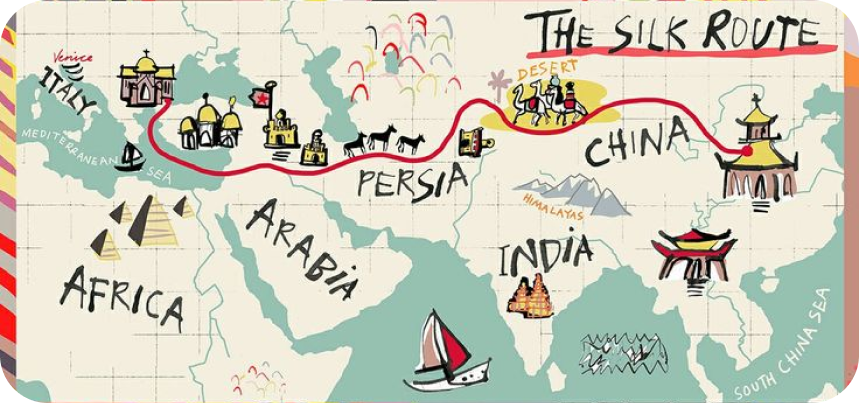 THE SILK ROUTE
Venice
ITALY
DESERT
MEDITERRANEAN
SEA
CHINA
PERSIA
HIMALAYAS
ARABIA
INDIA
AFRICA
SOUTH CHINA SEA